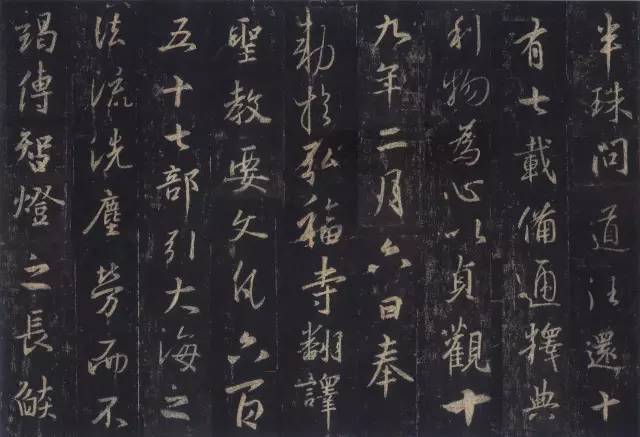 半珠問道往還十
有七載備通釋典
利物為心以貞觀十
九年二月六日奉
勅於弘福寺翻譯
聖教要文凡六百
五十七部引大海之
法流洗塵勞而不
竭傳智燈之長皎